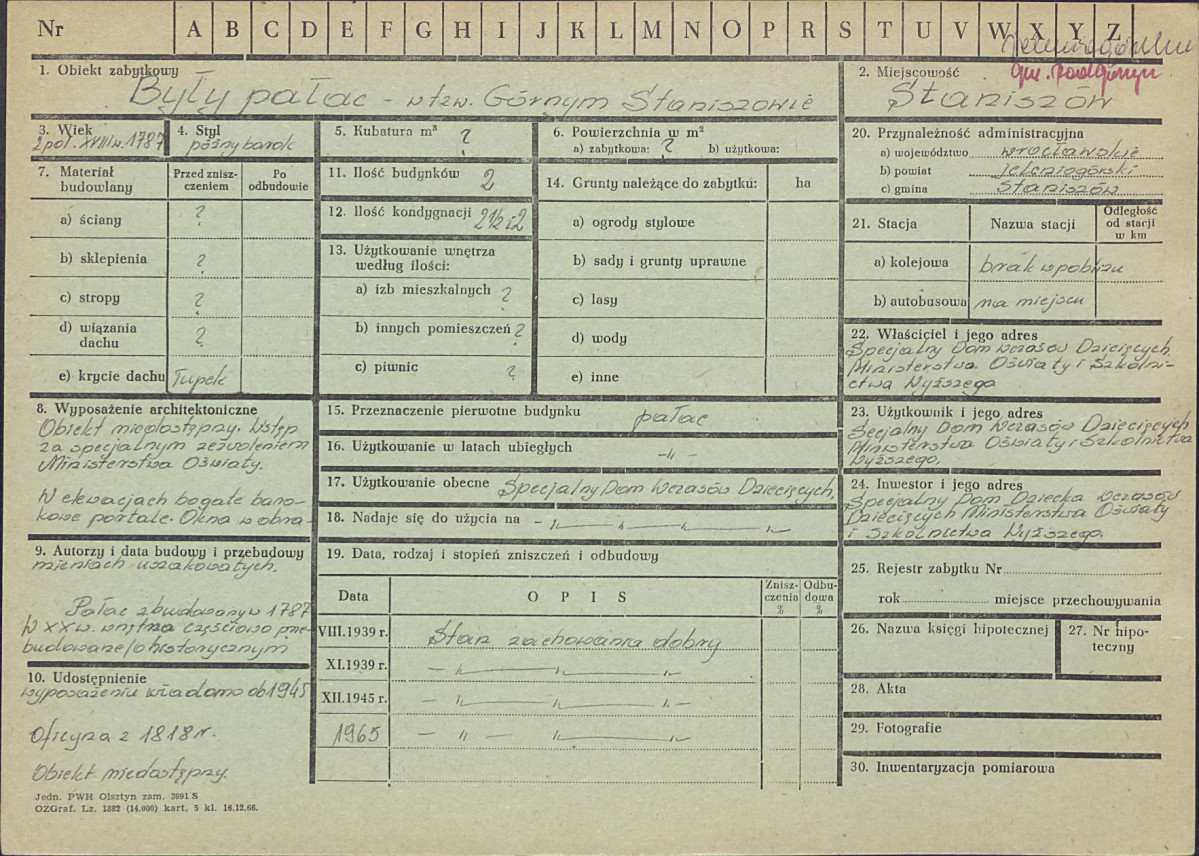 Nr A B C D E F G H I J K L M N O P R S T U V W X Y Z
gm. Podgórzyn
1. Obiekt zabytkowy
Były pałac - w tzw. Górnym Staniszowie
2. Miejscowość
Staniszów
3. Wiek
2 poł. XVIII w. 1787
4. Styl
późny barok
5. Kubatura m³ ?
6. Powierzchnia w m²
a) zabytkowa: ? b) użytkowa:
7. Materiał budowlany
Przed zniszczeniem
Po odbudowie
a) ściany ?
b) sklepienia ?
c) stropy ?
d) wiązania dachu ?
e) krycie dachu Łupek
8. Wyposażenie architektoniczne
Obiekt niedostępny. Wstęp
za specjalnym zezwoleniem
Ministerstwa Oświaty.
W elewacjach bogate baro-
kowe portale. Okna w obra-
9. Autorzy i data budowy i przebudowy
mieniach uszakowatych.
Pałac zbudowany w 1787
W XX w. wnętrza częściowo prze
budowane /o historycznym
10. Udostępnienie
wyposażeniu wiadomo do 1945
Oficyna z 1818 r.
Obiekt niedostępny.
Jedn. PWH Olsztyn zam. 3991 S
OZGraf. Lz. 1882 (14.000) kart. 5 kl. 16.12.66.
11. Ilość budynków 2
12. Ilość kondygnacji 2 1/2 i 2
13. Użytkowanie wnętrza według ilości:
a) izb mieszkalnych ?
b) innych pomieszczeń ?
c) piwnic ?
14. Grunty należące do zabytku: ha
a) ogrody stylowe
b) sady i grunty uprawne
c) lasy
d) wody
e) inne
15. Przeznaczenie pierwotne budynku pałac
16. Użytkowanie w latach ubiegłych -"-
17. Użytkowanie obecne Specjalny Dom Wczasów Dziecięcych
18. Nadaje się do użycia na -"- "- "-
19. Data, rodzaj i stopień zniszczeń i odbudowy
Data
OPIS
Zniszczenia %
Odbudowa %
VIII.1939 r. Stan zachowania dobry
XI.1939 r. - " - " -
XII.1945 r. - " - " - " -
1965 - " - " - " -
20. Przynależność administracyjna
a) województwo wrocławskie
b) powiat jeleniogórski
c) gmina Staniszów
21. Stacja
Nazwa stacji
Odległość od stacji w km
a) kolejowa brak w pobliżu
b) autobusowa na miejscu
22. Właściciel i jego adres
Specjalny Dom Wczasów Dziecięcych
Ministerstwa Oświaty i Szkolni-
ctwa Wyższego
23. Użytkownik i jego adres
Secjalny Dom Wczasów Dziecięcych
Ministerstwa Oświaty i Szkolnictwa
Wyższego.
24. Inwestor i jego adres
Specjalny Dom Dziecka Wczasów
Dziecięcych Ministerstwa Oświaty
i Szkolnictwa Wyższego.
25. Rejestr zabytku Nr
rok miejsce przechowywania
26. Nazwa księgi hipotecznej
27. Nr hipoteczny
28. Akta
29. Fotografie
30. Inwentaryzacja pomiarowa